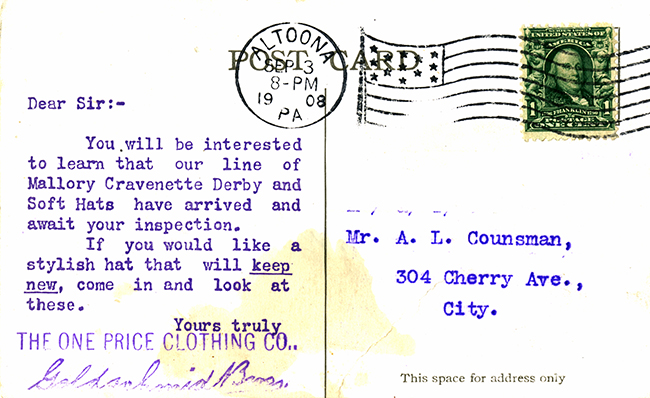 POST CARD
ALTOONA
SEP 3
8-PM
19 08
PA
UNITED STATES OF
AMERICA
1
FRANKLIN
POSTAGE
Dear Sir:-
You will be interested
to learn that our line of
Mallory Cravenette Derby and
Soft Hats have arrived and
await your inspection.
If you would like a
stylish hat that will keep
new, come in and look at
these.
Yours truly
THE ONE PRICE CLOTHING CO..
Goldschmid Bros.
Mr. A. L. Counsman,
304 Cherry Ave.,
City.
This space for address only